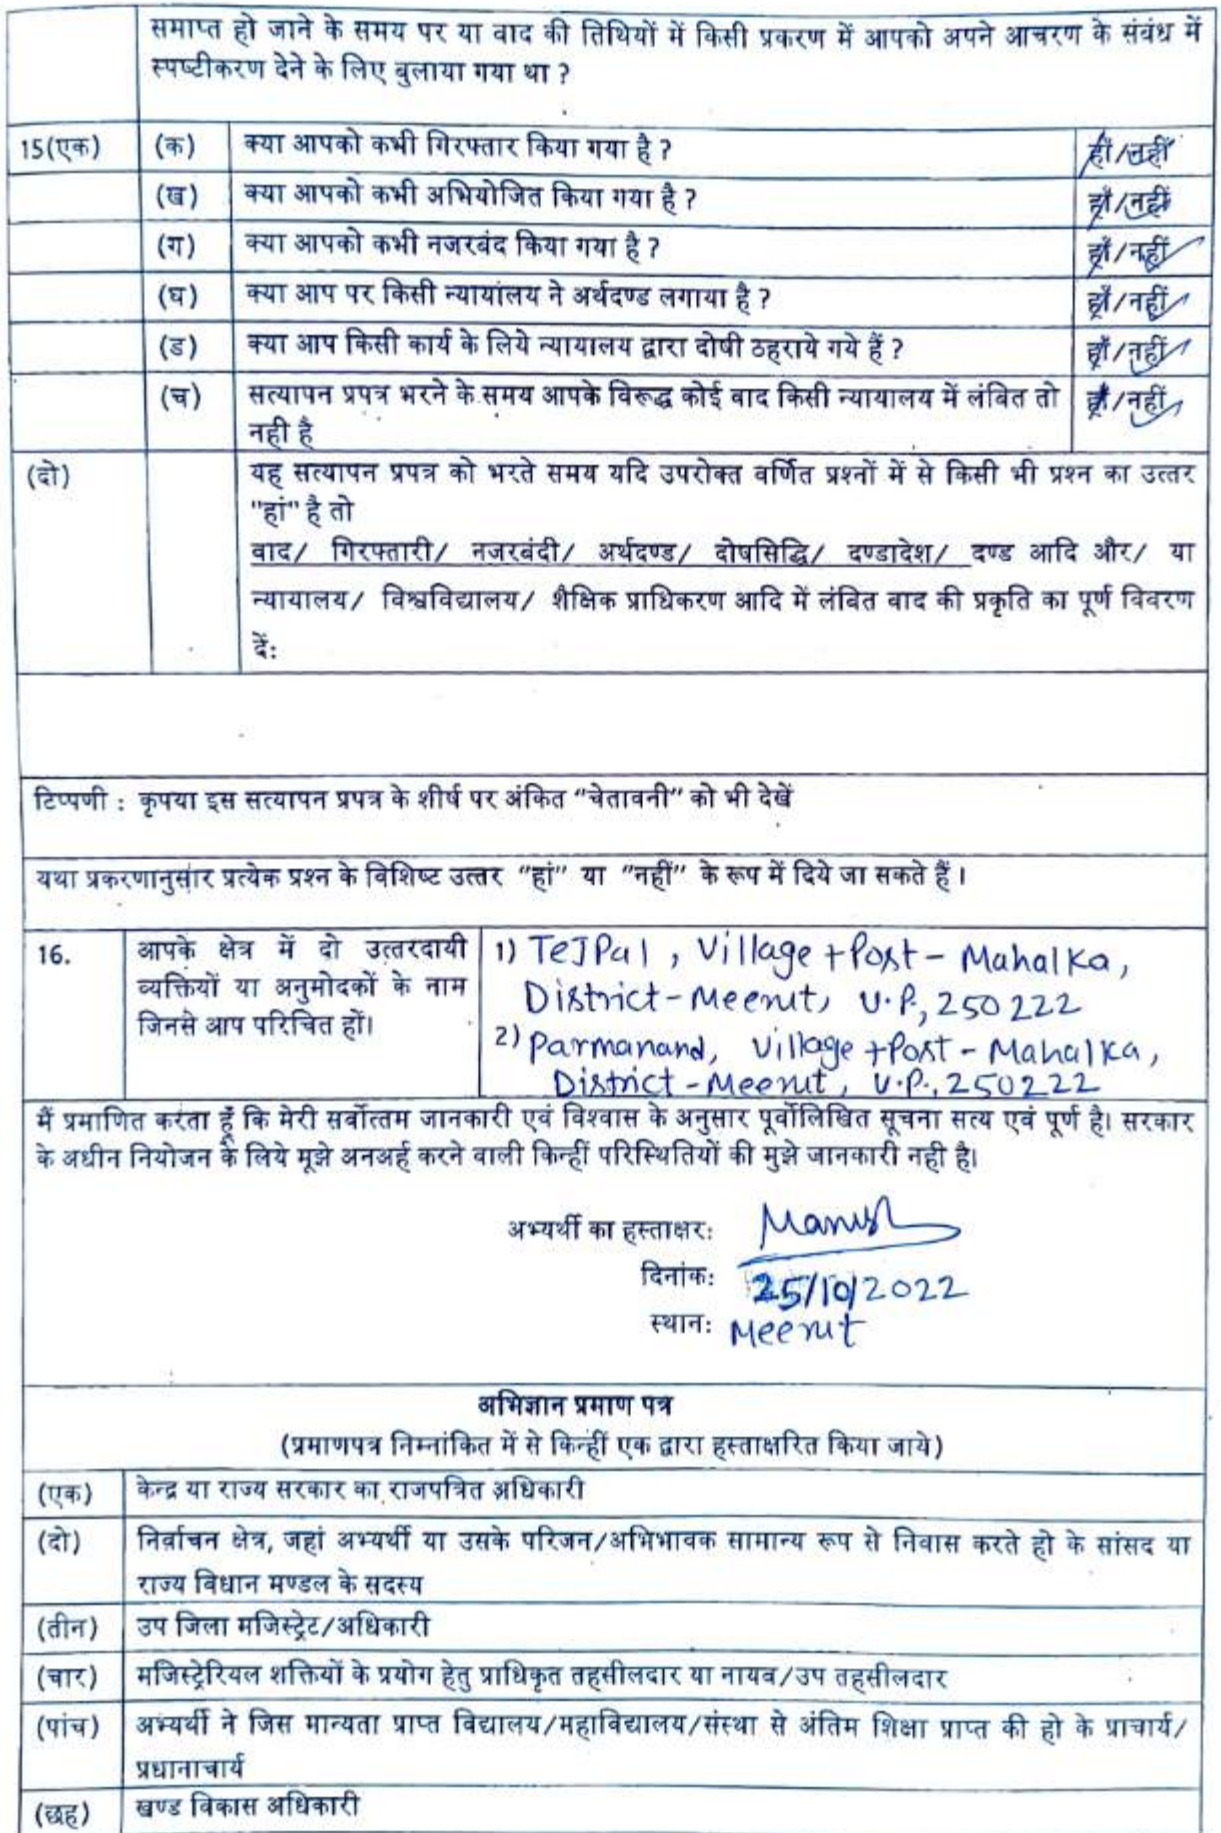 समाप्त हो जाने के समय पर या वाद की तिथियों में किसी प्रकरण में आपको अपने आचरण के संबंध में
स्पष्टीकरण देने के लिए बुलाया गया था ?
15(एक) (क) क्या आपको कभी गिरफ्तार किया गया है ? हाँ/नहीं
(ख) क्या आपको कभी अभियोजित किया गया है ? हाँ/नहीं
(ग) क्या आपको कभी नजरबंद किया गया है ? हाँ/नहीं
(घ) क्या आप पर किसी न्यायांलय ने अर्थदण्ड लगाया है ? हाँ/नहीं
(ड) क्या आप किसी कार्य के लिये न्यायालय द्वारा दोषी ठहराये गये हैं ? हाँ/नहीं
(च) सत्यापन प्रपत्र भरने के समय आपके विरूद्ध कोई वाद किसी न्यायालय में लंबित तो हाँ/नहीं
नही है
(दो) यह सत्यापन प्रपत्र को भरते समय यदि उपरोक्त वर्णित प्रश्नों में से किसी भी प्रश्न का उत्तर
"हां" है तो
वाद/ गिरफ्तारी/ नजरबंदी/ अर्थदण्ड/ दोषसिद्धि/ दण्डादेश/ दण्ड आदि और/ या
न्यायालय/ विश्वविद्यालय/ शैक्षिक प्राधिकरण आदि में लंबित वाद की प्रकृति का पूर्ण विवरण
दें:
टिप्पणी : कृपया इस सत्यापन प्रपत्र के शीर्ष पर अंकित "चेतावनी" को भी देखें
यथा प्रकरणानुसार प्रत्येक प्रश्न के विशिष्ट उत्तर "हां" या "नहीं" के रूप में दिये जा सकते हैं ।
16. आपके क्षेत्र में दो उत्तरदायी 1) TeJPal, Village + Post - Mahalka,
व्यक्तियों या अनुमोदकों के नाम District - Meerut, U.P., 250222
जिनसे आप परिचित हों। 2) Parmanand, Village + Post - Mahalka,
District - Meerut, U.P., 250222
मैं प्रमाणित करता हूँ कि मेरी सर्वोत्तम जानकारी एवं विश्वास के अनुसार पूर्वोलिखित सूचना सत्य एवं पूर्ण है। सरकार
के अधीन नियोजन के लिये मूझे अनअर्ह करने वाली किन्हीं परिस्थितियों की मुझे जानकारी नही है।
अभ्यर्थी का हस्ताक्षर: Manish
दिनांक: 25/10/2022
स्थान: Meerut
अभिज्ञान प्रमाण पत्र
(प्रमाणपत्र निम्नांकित में से किन्हीं एक द्वारा हस्ताक्षरित किया जाये)
(एक) केन्द्र या राज्य सरकार का राजपत्रित अधिकारी
(दो) निर्वाचन क्षेत्र, जहां अभ्यर्थी या उसके परिजन/अभिभावक सामान्य रूप से निवास करते हो के सांसद या
राज्य विधान मण्डल के सदस्य
(तीन) उप जिला मजिस्ट्रेट/अधिकारी
(चार) मजिस्ट्रेरियल शक्तियों के प्रयोग हेतु प्राधिकृत तहसीलदार या नायब/उप तहसीलदार
(पांच) अभ्यर्थी ने जिस मान्यता प्राप्त विद्यालय/महाविद्यालय/संस्था से अंतिम शिक्षा प्राप्त की हो के प्राचार्य/
प्रधानाचार्य
(छह) खण्ड विकास अधिकारी